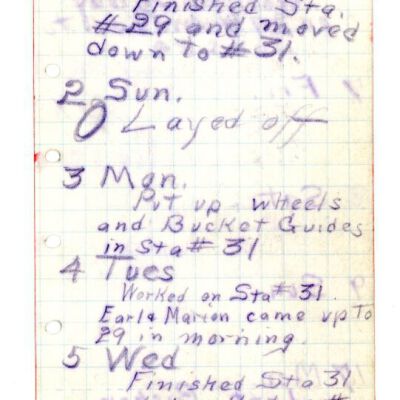 Finished Sta.
#29 and moved
down To #31.
2 Sun.
0 Layed off
3 Mon.
Put up wheels
and Bucket Guides
in Sta# 31
4 Tues
Worked on Sta# 31.
Earl & Marion came up To
29 in morning.
5 Wed
Finished Sta 31